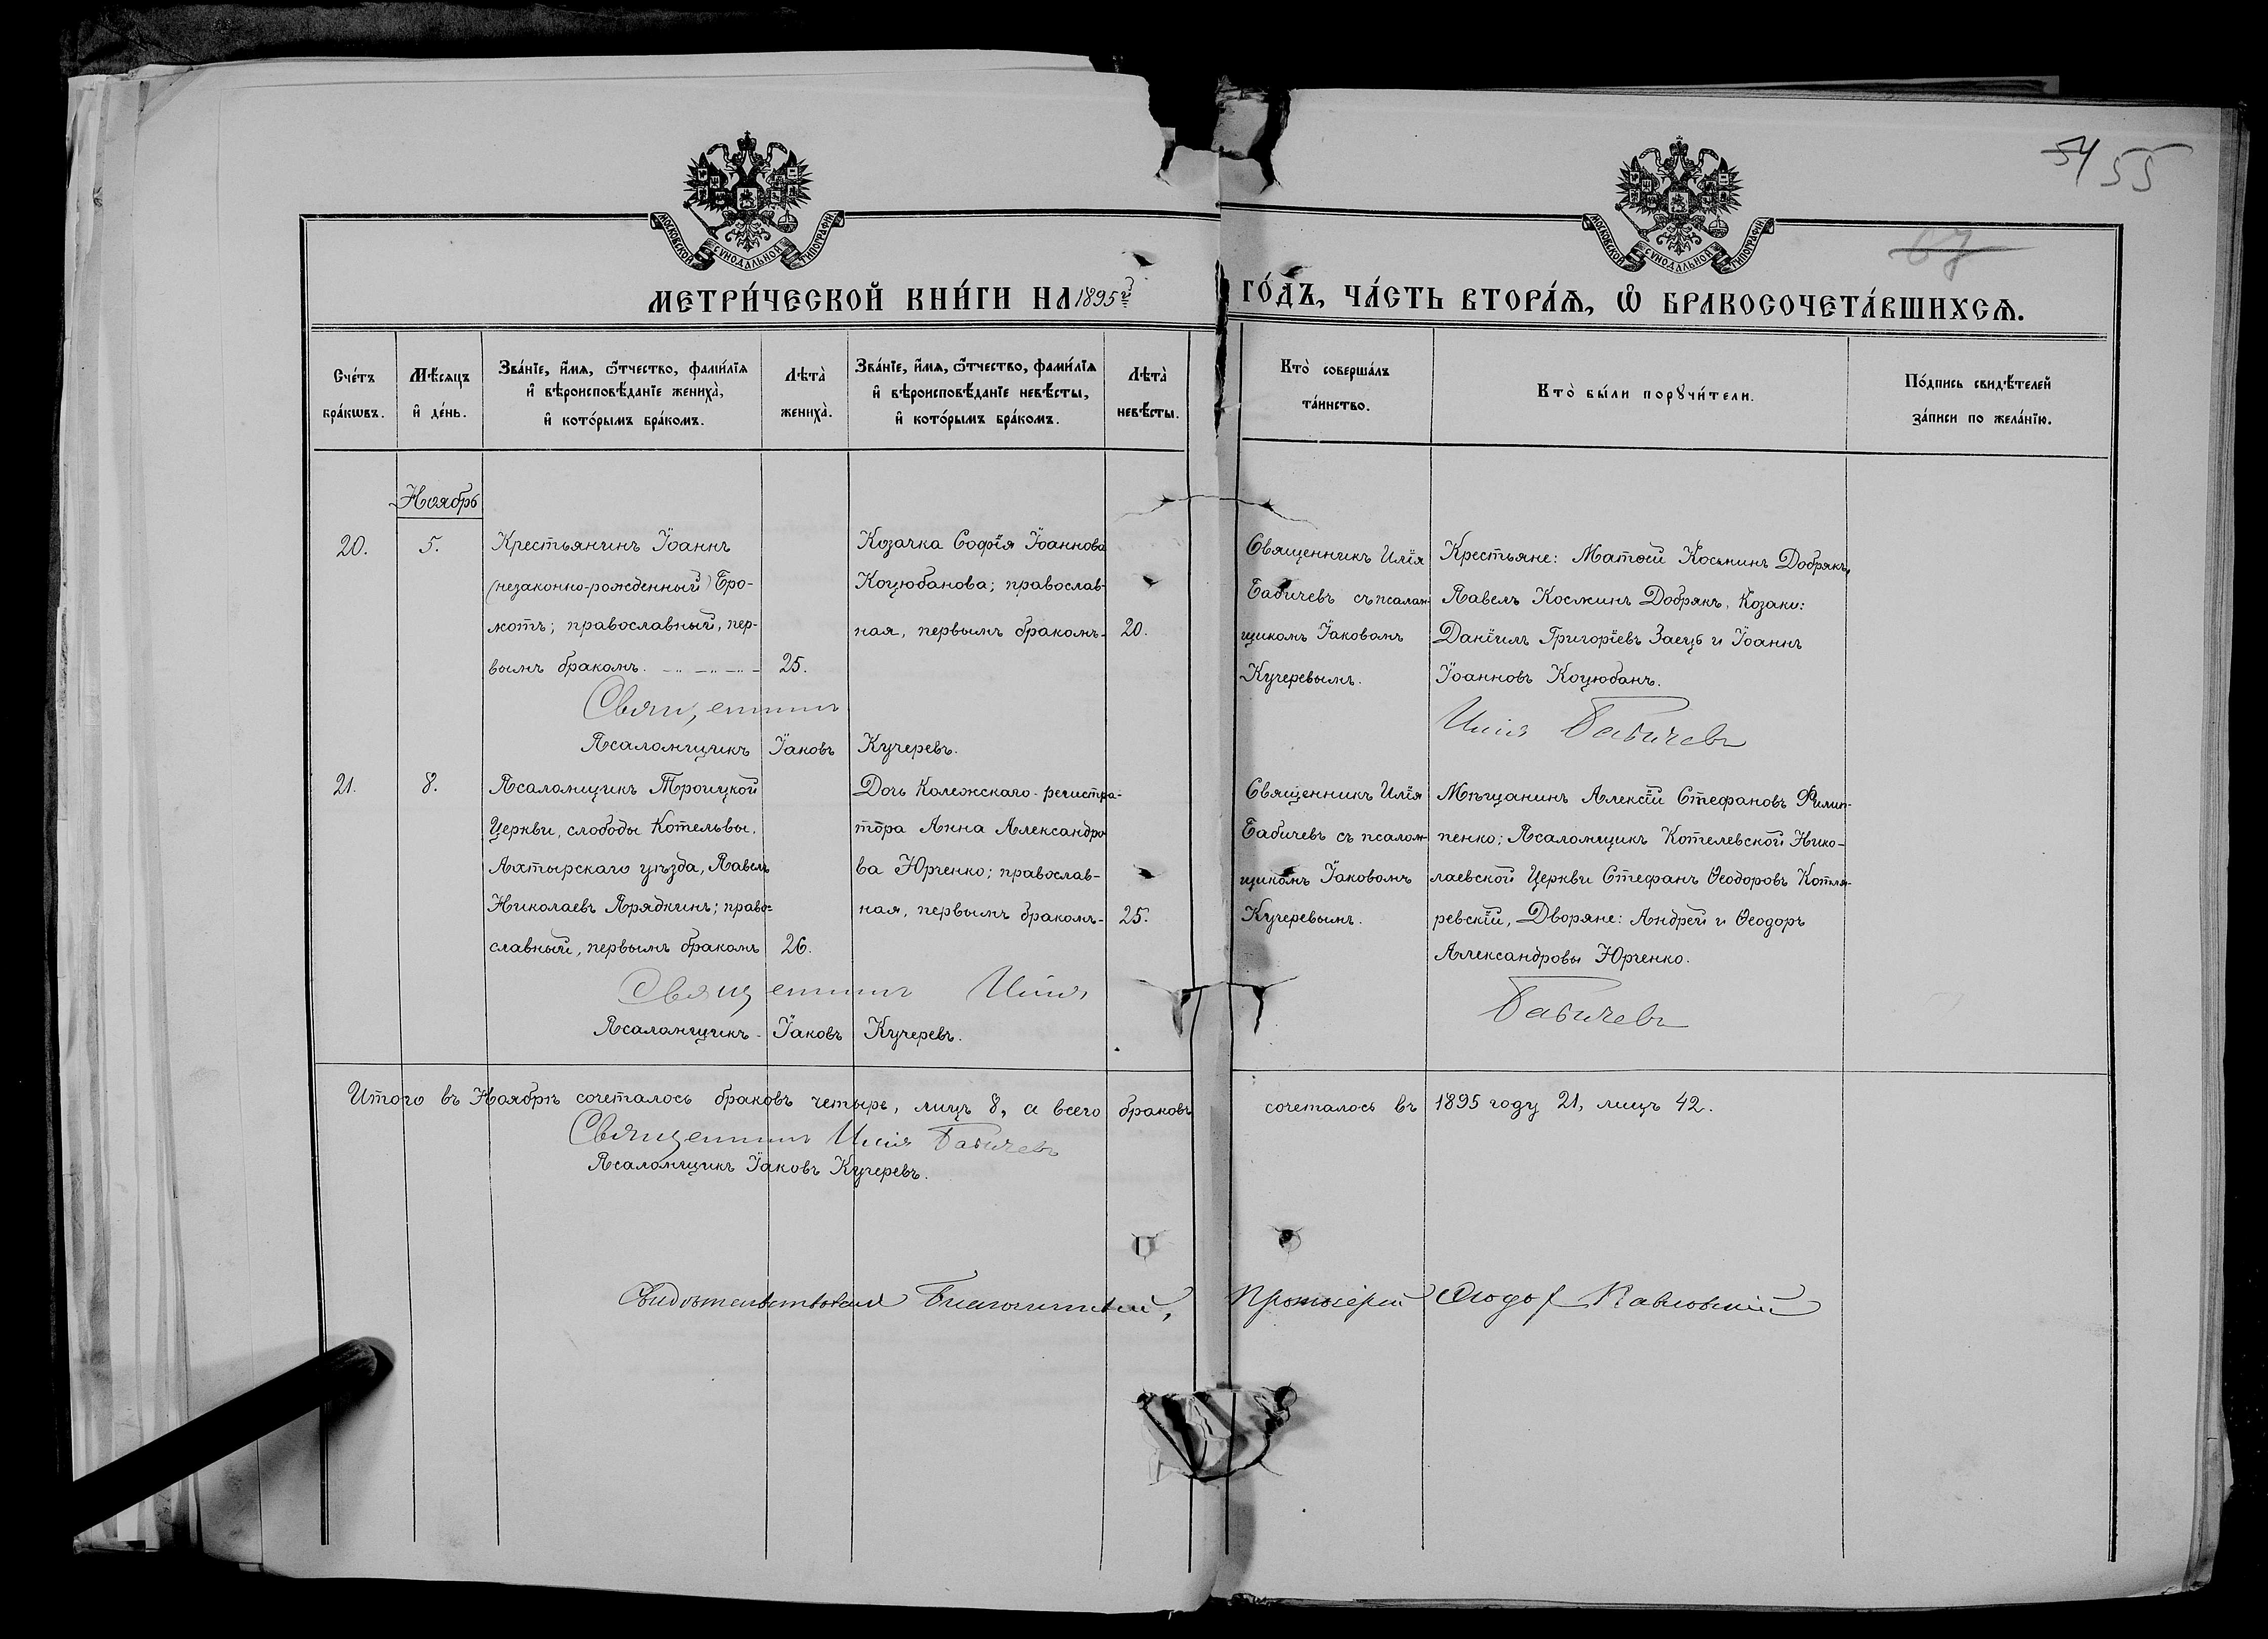 54 55
67
МОСКОВСКОЙ СѴНОДАЛЬНОЙ ТИПОГРАФІИ
МОСКОВСКОЙ СѴНОДАЛЬНОЙ ТИПОГРАФІИ
МЕТРИ́ЧЕСКОЙ КНИ́ГИ НА 1895 й ГО́ДЪ, ЧА́СТЬ ВТОРА́Ѧ, Ѽ БРАКОСОЧЕТА́ВШИХСѦ.
Сче́тъ
бра́кѡвъ.
Мѣ́сѧцъ
и҆ де́нь.
Зва́нїе, и҆́мѧ, ѻ҆́тчество, фами́лїѧ
и҆ вѣроисповѣ́данїе жениха̀,
и҆ кото́рымъ бра́комъ.
Лѣта̀
жениха̀.
Зва́нїе, и҆́мѧ, ѻ҆́тчество, фами́лїѧ
и҆ вѣроисповѣ́данїе невѣ́сты,
и҆ кото́рымъ бра́комъ.
Лѣта̀
невѣ́сты.
Кто̀ соверша́лъ
та́инство.
Кто̀ бы́ли порꙋчи́тели.
По́дпись свидѣ́телей
за́писи по жела́нїю.
Ноябрь
20.
5.
Крестьянинъ Іоаннъ
(незаконно-рожденный) Бро-
мотъ; православный, пер-
вымъ бракомъ.
25.
Козачка Софія Іоаннова
Коцюбанова; православ-
ная, первымъ бракомъ-
20.
Священникъ Илія
Бабичевъ съ псалом-
щикомъ Іаковомъ
Кучеревымъ.
Крестьяне: Матѳей Космин Добрякъ,
Павелъ Косминъ Добрякъ, Козаки:
Даніилъ Григоріевъ Заецъ и Іоаннъ
Іоанновъ Коцюбанъ.
Священникъ Илія Бабичевъ
Псаломщикъ Іаковъ Кучеревъ.
21.
8.
Псаломщикъ Троицкой
Церкви, слободы Котельвы,
Ахтырскаго уѣзда, Павелъ
Николаевъ Прядкинъ; право-
славный, первымъ бракомъ
26.
Дочь Колежскаго-регистра-
тора Анна Александро
ва Юрченко; православ-
ная, первымъ бракомъ-
25.
Священникъ Илія
Бабичевъ съ псалом-
щикомъ Іаковомъ
Кучеревымъ.
Мѣщанинъ Алексій Стефановъ Филип-
пенко; Псаломщикъ Котелевской Нико-
лаевской Церкви Стефанъ Ѳеодоровъ Котля-
ревскій, Дворяне: Андрей и Ѳеодоръ
Александровы Юрченко.
Священникъ Илія Бабичевъ
Псаломщикъ Іаковъ Кучеревъ.
Итого въ Ноябрѣ сочеталось браковъ четыре, лицъ 8, а всего браковъ сочеталось въ 1895 году 21, лицъ 42.
Священникъ Илія Бабичевъ
Псаломщикъ Іаковъ Кучеревъ.
Свидѣтельствовалъ Благочинный, Протоіерей Ѳеодоръ Павловскій